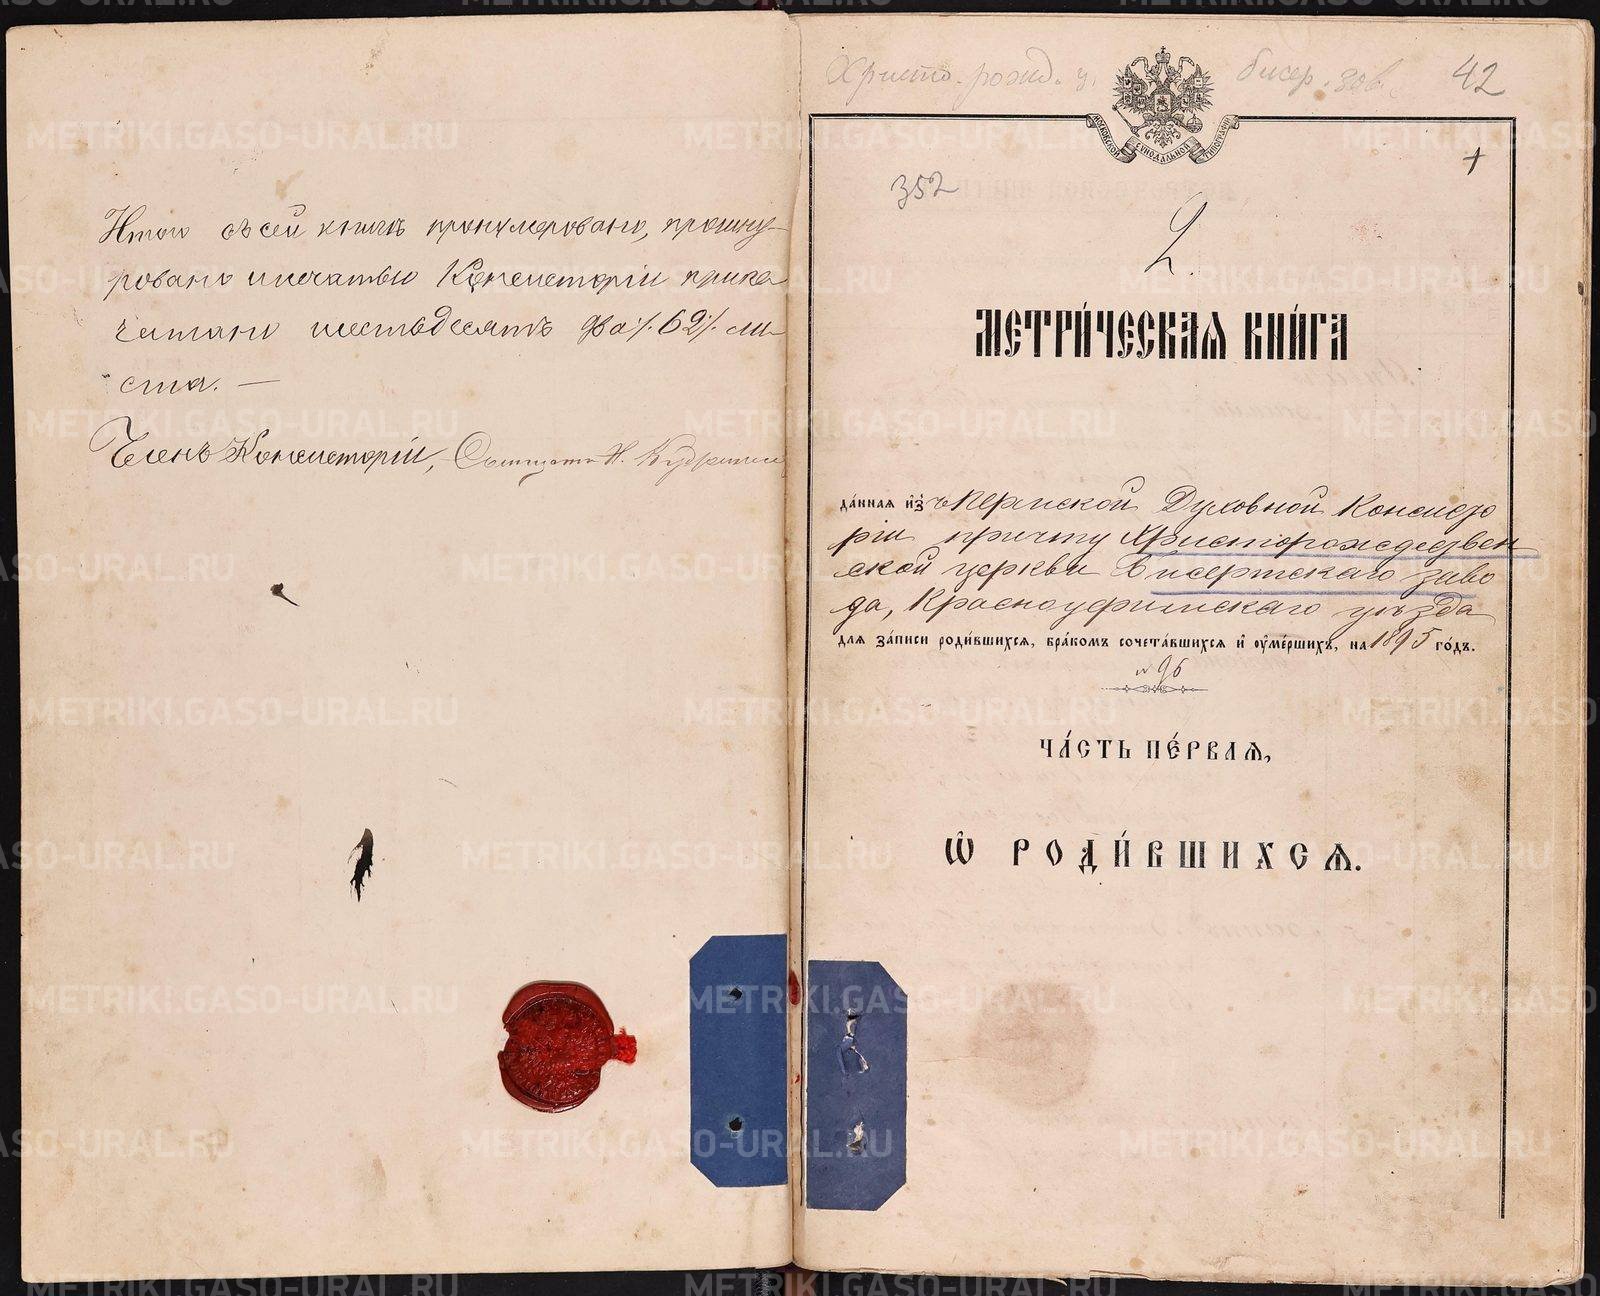 Итого въ сей книгѣ пронумеровано, прошну-
ровано и печатью Консисторіи припе
чатано шестьдесятъ два ./. 62 ./. ли-
ста. —
Членъ Консисторіи,
Христо. рожд. ц. бисер. зав. 42
МОСКОВСКОЙ СѴНОДАЛЬНОЙ ТИПОГРАФІИ
+
352
2.
МЕТРИ́ЧЕСКАЯ КНИ́ГА
да́нная и҆зъ Пермской Духовной Консисто
ріи причту Христорождествен
ской церкви Бисертскаго заво
да, Красноуфимскаго уѣзда
для за́писи роди́вшихся, бра́комъ сочета́вшихся и҆ ѹ҆ме́ршихъ, на 1895 го́дъ.
№ 96
ЧА́СТЬ ПЕ́РВАЯ,
Ѽ РОДИ́ВШИХСЯ.
METRIKI.GASO-URAL.RU